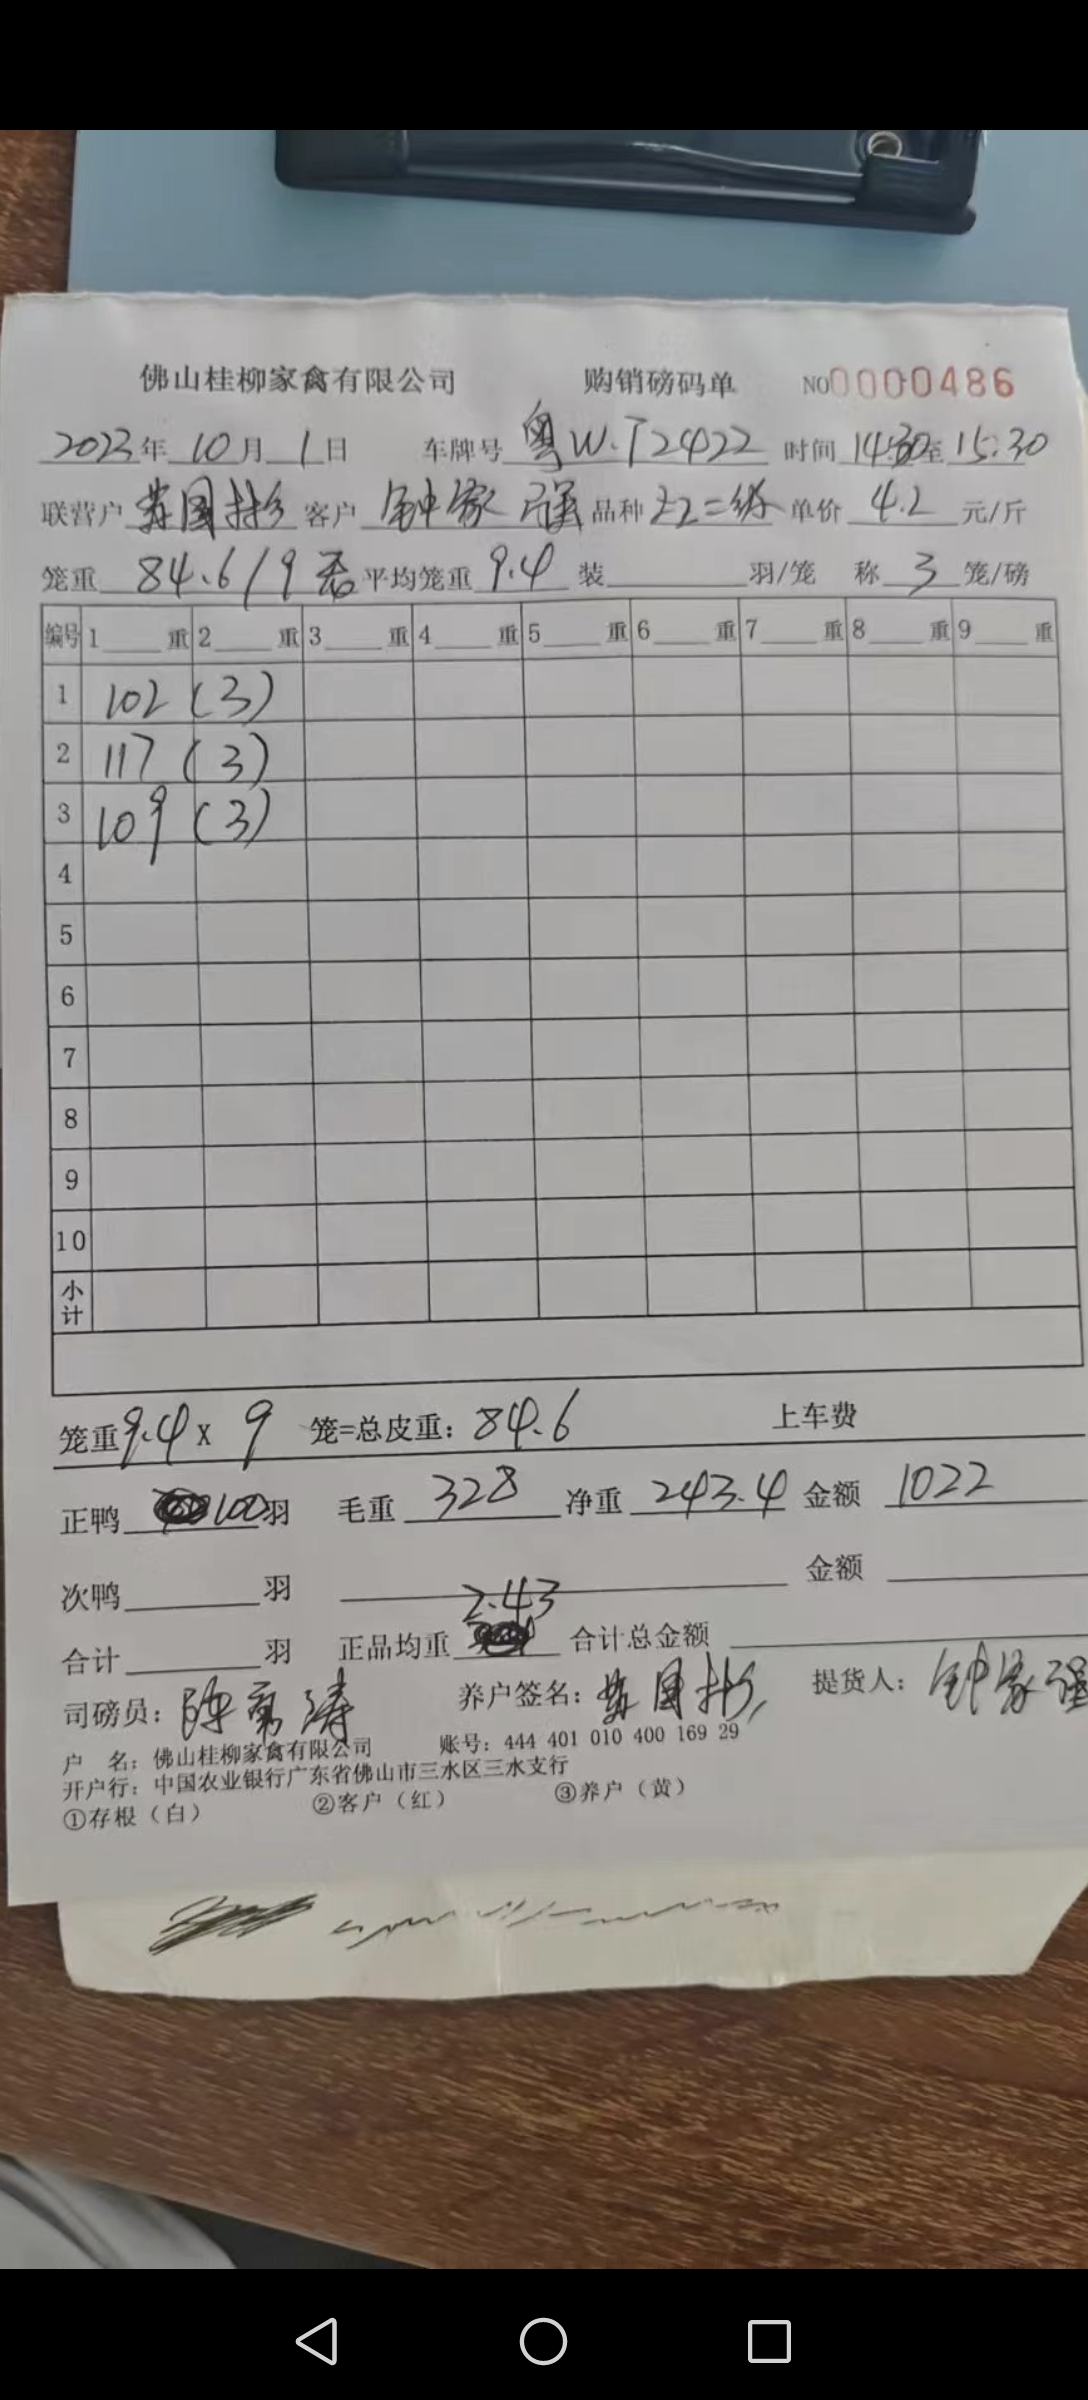 佛山桂柳家禽有限公司 购销磅码单 NO0000486
2023年 10月 1日 车牌号 粤W.T2422 时间 14:30至15:30
联营户 国彬 客户 钟家强 品种 二 单价 4.2 元/斤
笼重 84.6/9 平均笼重 9.4 装 羽/笼 称 3 笼/磅
编号 1 重 2 重 3 重 4 重 5 重 6 重 7 重 8 重 9 重
1 102 (3)
2 117 (3)
3 109 (3)
4
5
6
7
8
9
10
小计
笼重9.4 x 9 笼=总皮重: 84.6 上车费
正鸭 100羽 毛重 328 净重 243.4 金额 1022
次鸭 羽 金额
合计 羽 正品均重 2.43 合计总金额
司磅员: 陈 涛 养户签名: 国彬 提货人: 钟家强
户 名: 佛山桂柳家禽有限公司 账号: 444 401 010 400 169 29
开户行: 中国农业银行广东省佛山市三水区三水支行
①存根(白) ②客户(红) ③养户(黄)